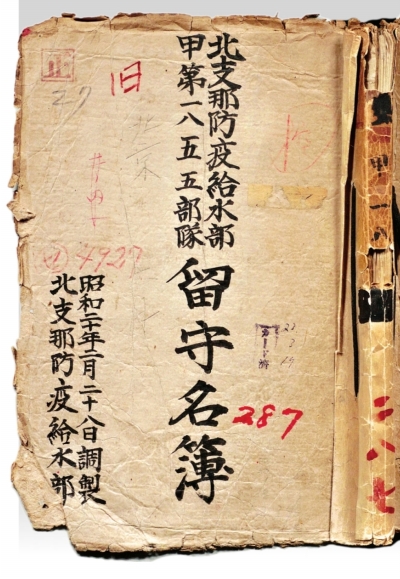 北支那防疫給水部
甲第一八五五部隊
留守名簿
287
昭和二十年二月二十八日調製
北支那防疫給水部
旧
27
4927
カード済
甲一八
二八七